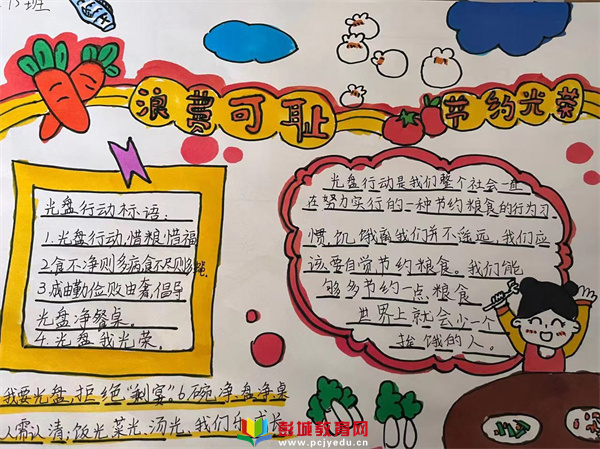 15班
浪费可耻
节约光荣
光盘行动标语：
1.光盘行动，惜粮惜福
2.食不净则多病食不尽则多
3.成由勤俭败由奢倡导
光盘净餐桌。
4.光盘我光荣。
光盘行动是我们整个社会一直
在努力实行的一种节约粮食的行为习
惯，饥饿离我们并不遥远，我们应
该要自觉节约粮食。我们能
够多节约一点粮食
世界上就会少一个
挨饿的人。
我要光盘，拒绝“剩宴”。6.碗净盘净桌
人需认清：饭光菜光、汤光、我们乐成长
彭城教育网
www.pcjyedu.cn